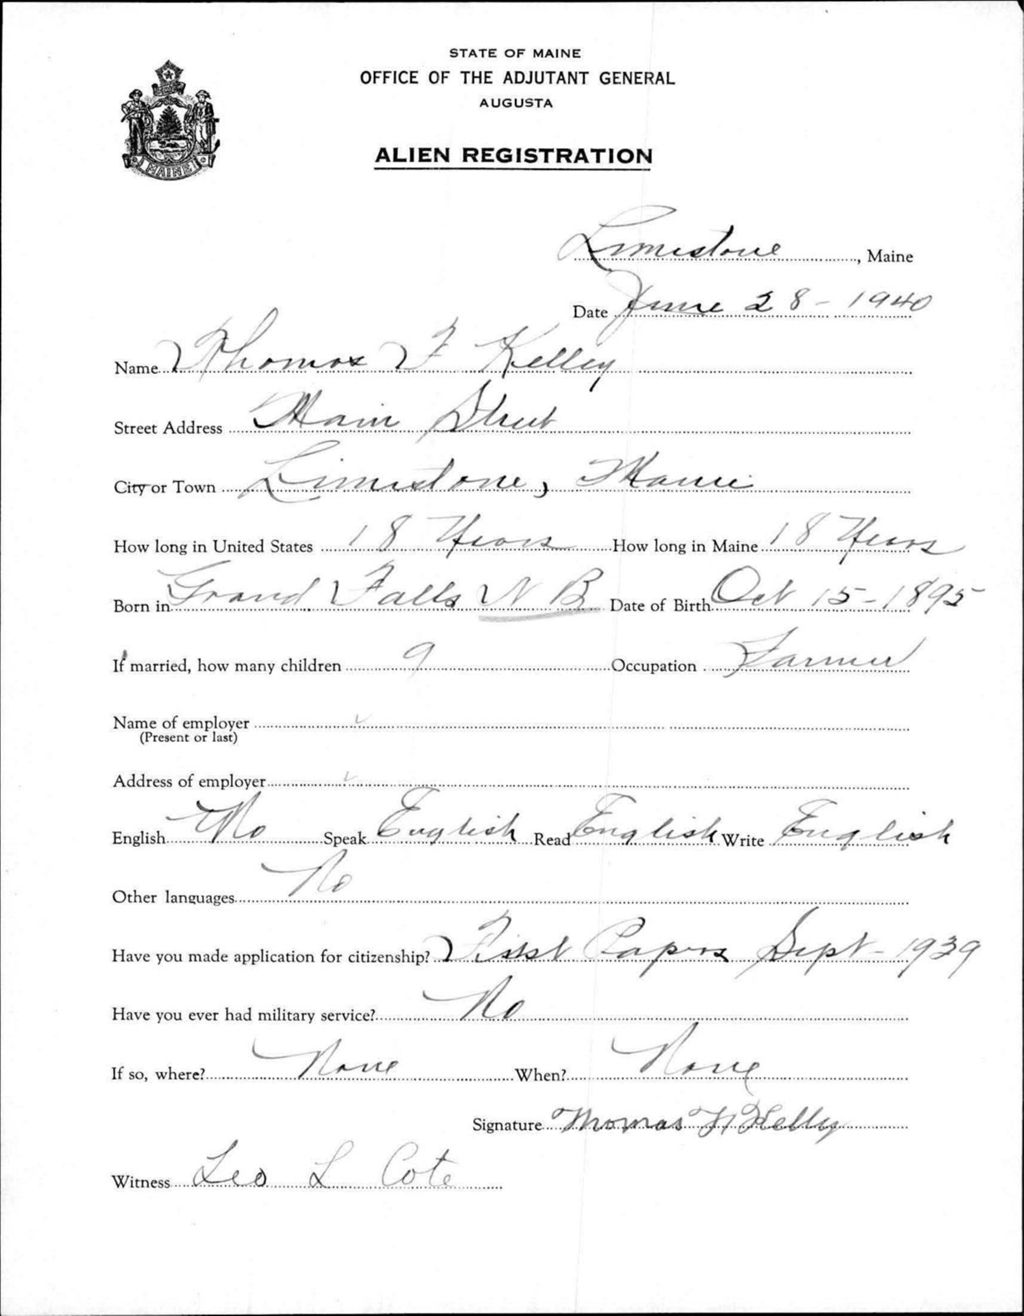 STATE OF MAINE
OFFICE OF THE ADJUTANT GENERAL
AUGUSTA
ALIEN REGISTRATION
MAINE
Limestone, Maine
Date June 28 - 1940
Name Thomas F Kelley
Street Address Main Street
City or Town Limestone, Maine
How long in United States 18 Years How long in Maine 18 Years
Born in Grand Falls N B Date of Birth Oct 15 - 1895
If married, how many children 9 Occupation Farmer
Name of employer
(Present or last)
Address of employer
English No Speak English Read English Write English
Other languages No
Have you made application for citizenship? First Papers Sept - 1939
Have you ever had military service? No
If so, where? None When? None
Signature Thomas F Kelly
Witness Leo L Cote